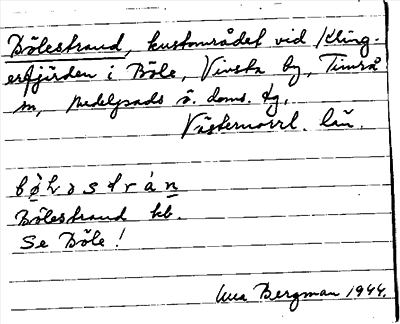 Bölestrand, kustområdet vid Kling-
erfjärden i Böle, Vivsta by, Timrå
sn, Medelpads ö. doms. dg,
Västernorrl. län.
bø̀ɫastrán
Bölestrand kb.
Se Böle!
Bergman 1944.